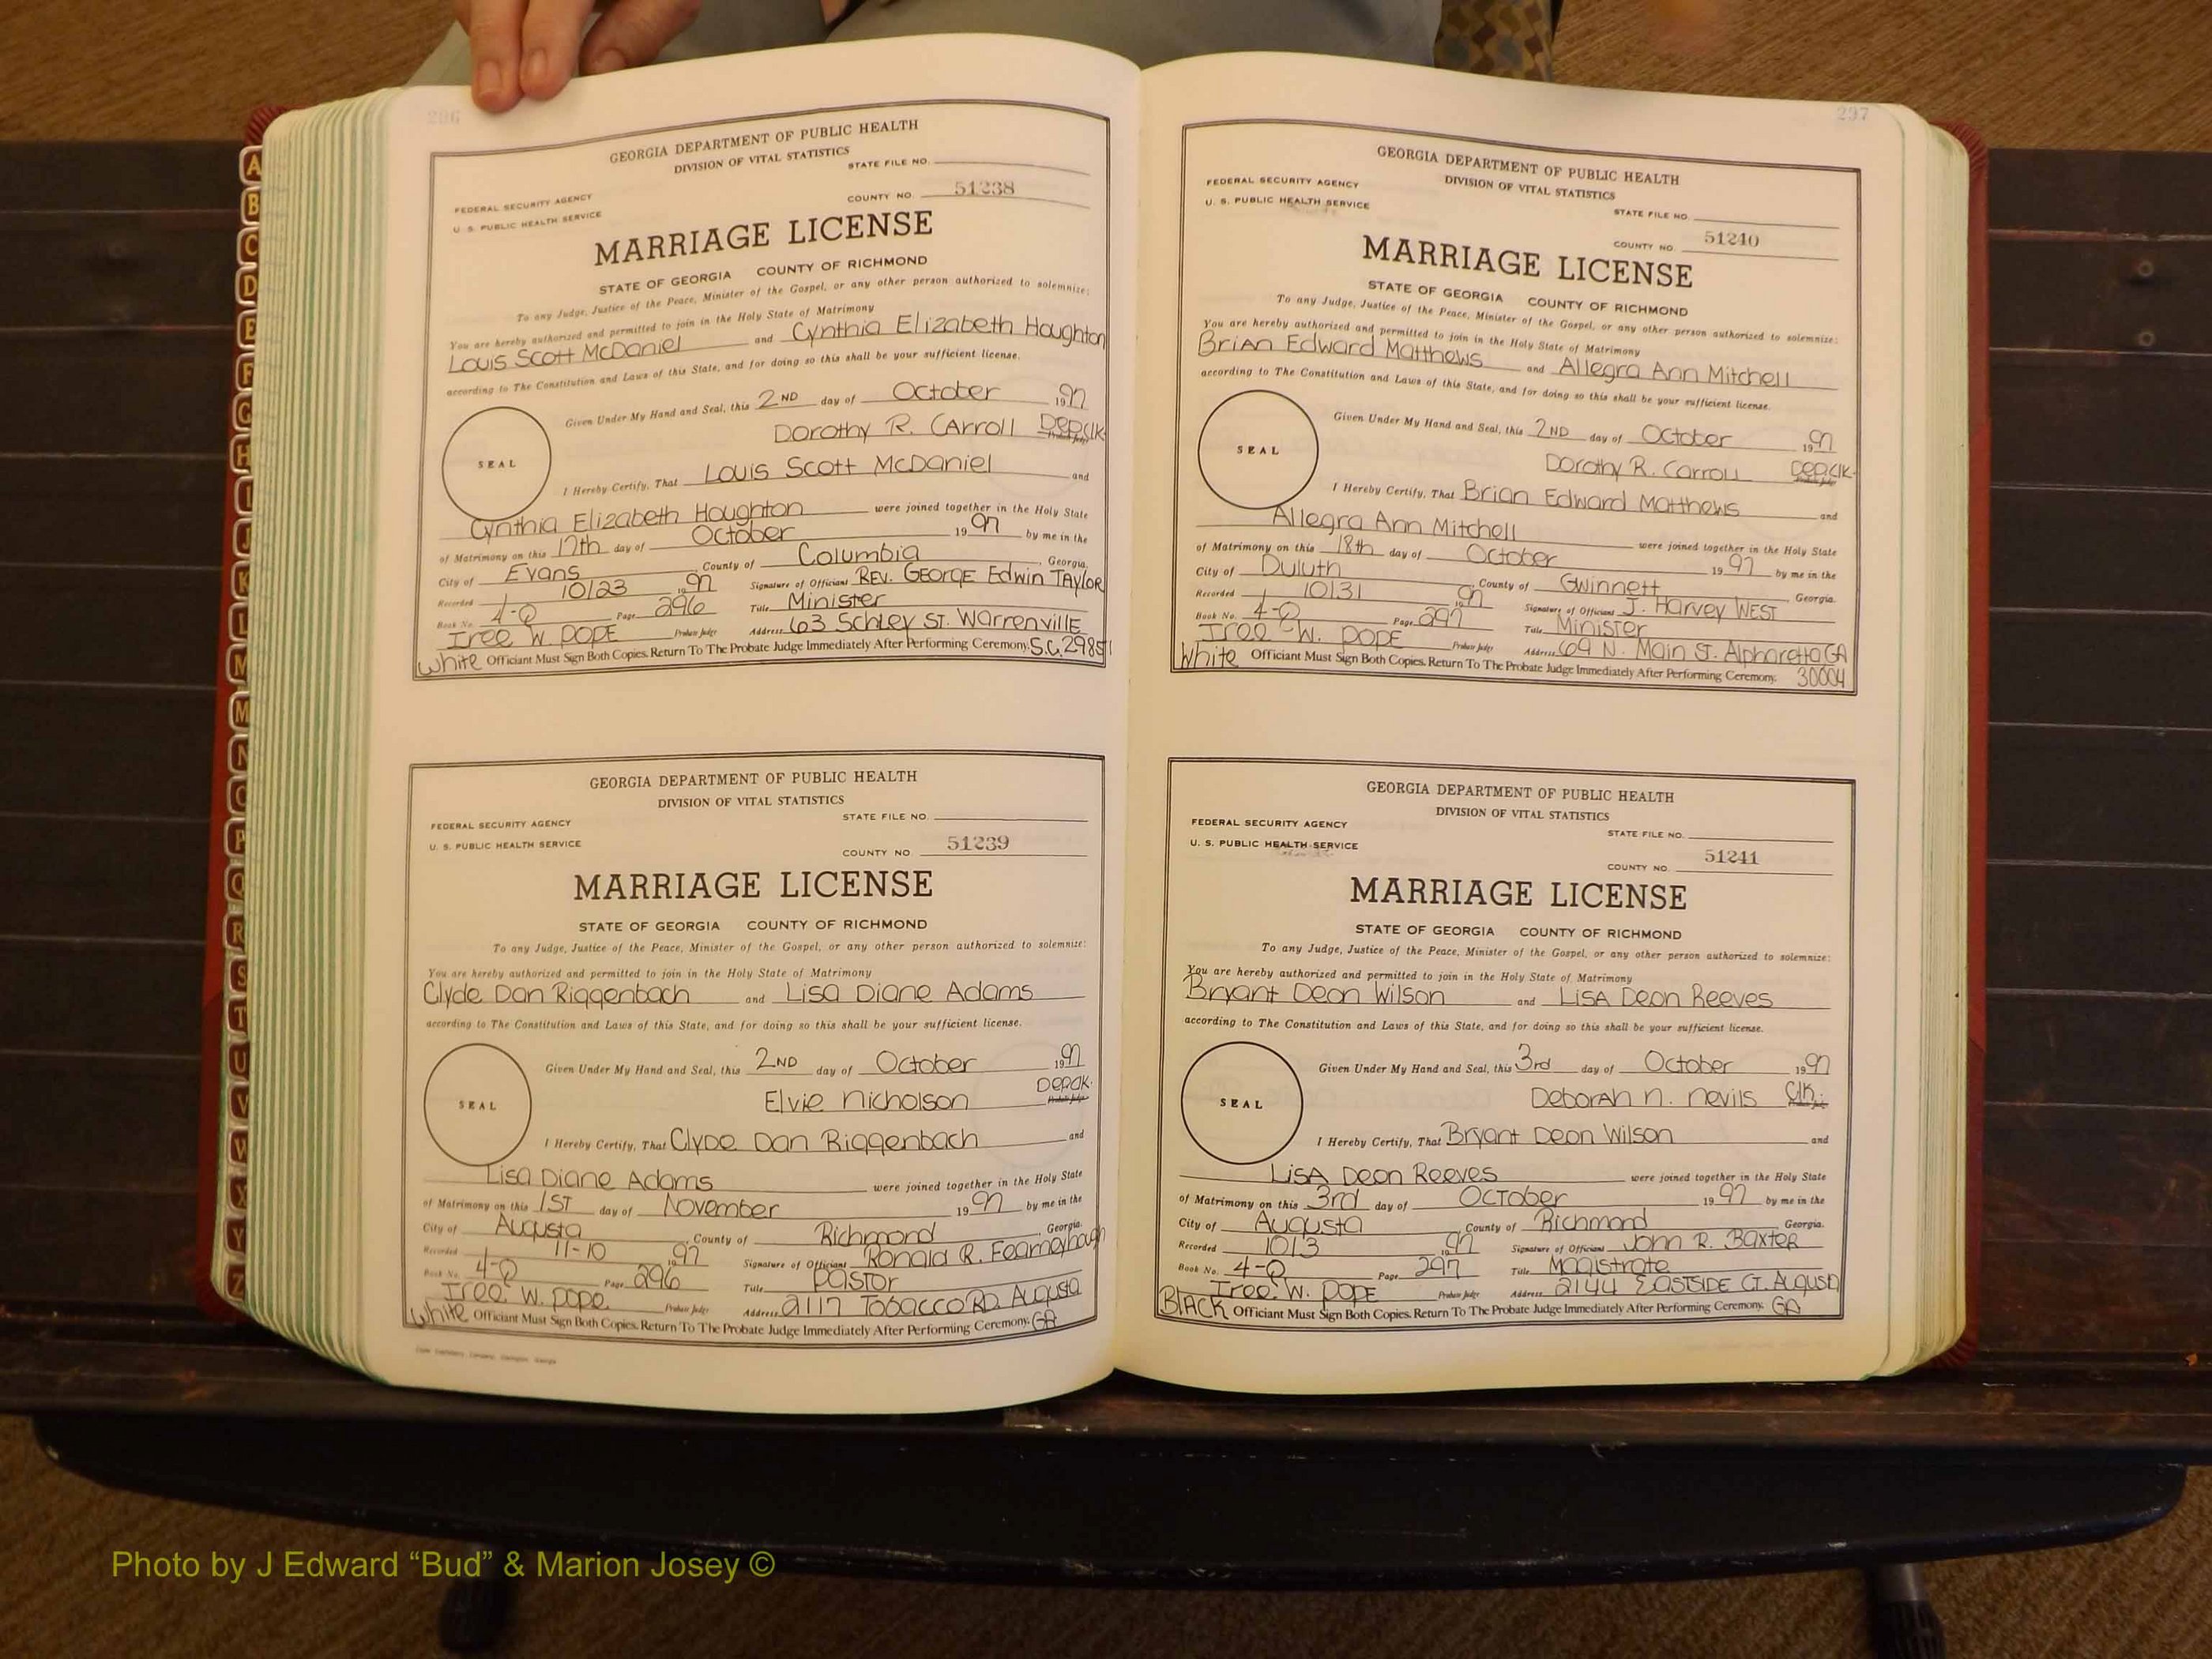 296
GEORGIA DEPARTMENT OF PUBLIC HEALTH
DIVISION OF VITAL STATISTICS
STATE FILE NO.
FEDERAL SECURITY AGENCY
COUNTY NO. 51238
U. S. PUBLIC HEALTH SERVICE
MARRIAGE LICENSE
STATE OF GEORGIA COUNTY OF RICHMOND
To any Judge, Justice of the Peace, Minister of the Gospel, or any other person authorized to solemnize:
You are hereby authorized and permitted to join in the Holy State of Matrimony
Louis Scott McDaniel and Cynthia Elizabeth Houghton
according to The Constitution and Laws of this State, and for doing so this shall be your sufficient license.
Given Under My Hand and Seal, this 2ND day of October 1997
Dorothy R. Carroll Dep.Clk.
SEAL
I Hereby Certify, That Louis Scott McDaniel and
Cynthia Elizabeth Houghton were joined together in the Holy State
of Matrimony on this 17th day of October 1997 by me in the
City of Evans County of Columbia, Georgia.
Recorded 10/23 1997 Signature of Officiant Rev. George Edwin Taylor
Book No. 4-Q Page 296 Title Minister
Iree W. Pope Probate Judge Address 63 Schley St. Warrenville
White Officiant Must Sign Both Copies. Return To The Probate Judge Immediately After Performing Ceremony. S.C. 29851
GEORGIA DEPARTMENT OF PUBLIC HEALTH
DIVISION OF VITAL STATISTICS
STATE FILE NO.
FEDERAL SECURITY AGENCY
U. S. PUBLIC HEALTH SERVICE
COUNTY NO 51239
MARRIAGE LICENSE
STATE OF GEORGIA COUNTY OF RICHMOND
To any Judge, Justice of the Peace, Minister of the Gospel, or any other person authorized to solemnize:
You are hereby authorized and permitted to join in the Holy State of Matrimony
Clyde Dan Riggenbach and Lisa Diane Adams
according to The Constitution and Laws of this State, and for doing so this shall be your sufficient license.
Given Under My Hand and Seal, this 2ND day of October 1997
Elvie Nicholson Dep.Clk. Probate Judge
SEAL
I Hereby Certify, That Clyde Dan Riggenbach and
Lisa Diane Adams were joined together in the Holy State
of Matrimony on this 1ST day of November 1997 by me in the
City of Augusta, County of Richmond, Georgia.
Recorded 11-10 1997 Signature of Officiant Ronald R. Fearneyhough
Book No. 4-Q Page 296 Title Pastor
Iree W. Pope Probate Judge Address 2117 Tobacco RD. Augusta
White Officiant Must Sign Both Copies. Return To The Probate Judge Immediately After Performing Ceremony. GA
297
GEORGIA DEPARTMENT OF PUBLIC HEALTH
DIVISION OF VITAL STATISTICS
FEDERAL SECURITY AGENCY
U. S. PUBLIC HEALTH SERVICE
STATE FILE NO.
COUNTY NO. 51240
MARRIAGE LICENSE
STATE OF GEORGIA COUNTY OF RICHMOND
To any Judge, Justice of the Peace, Minister of the Gospel, or any other person authorized to solemnize:
You are hereby authorized and permitted to join in the Holy State of Matrimony
Brian Edward Matthews and Allegra Ann Mitchell
according to The Constitution and Laws of this State, and for doing so this shall be your sufficient license.
Given Under My Hand and Seal, this 2ND day of October 1997
Dorothy R. Carroll Dep.Clk.
SEAL
I Hereby Certify, That Brian Edward Matthews and
Allegra Ann Mitchell were joined together in the Holy State
of Matrimony on this 18th day of October 1997 by me in the
City of Duluth, County of Gwinnett, Georgia.
Recorded 10/31 1997 Signature of Officiant J. Harvey West
Book No. 4-Q Page 297 Title Minister
Iree W. Pope Probate Judge Address 69 N. Main St. Alpharetta GA
White Officiant Must Sign Both Copies. Return To The Probate Judge Immediately After Performing Ceremony. 30004
GEORGIA DEPARTMENT OF PUBLIC HEALTH
DIVISION OF VITAL STATISTICS
FEDERAL SECURITY AGENCY
STATE FILE NO.
U. S. PUBLIC HEALTH SERVICE
COUNTY NO. 51241
MARRIAGE LICENSE
STATE OF GEORGIA COUNTY OF RICHMOND
To any Judge, Justice of the Peace, Minister of the Gospel, or any other person authorized to solemnize:
You are hereby authorized and permitted to join in the Holy State of Matrimony
Bryant Deon Wilson and Lisa Deon Reeves
according to The Constitution and Laws of this State, and for doing so this shall be your sufficient license.
Given Under My Hand and Seal, this 3rd day of October 1997
Deborah N. Nevils Clk.
SEAL
I Hereby Certify, That Bryant Deon Wilson and
Lisa Deon Reeves were joined together in the Holy State
of Matrimony on this 3rd day of October 1997 by me in the
City of Augusta, County of Richmond, Georgia.
Recorded 10/3 1997 Signature of Officiant John R. Baxter
Book No. 4-Q Page 297 Title Magistrate
Iree W. Pope Probate Judge Address 2144 Eastside Ct. Augusta
Black Officiant Must Sign Both Copies. Return To The Probate Judge Immediately After Performing Ceremony. GA
A
B
C
D
E
F
G
H
I
J
K
L
M
M
N
O
P
Q
R
S
T
U
V
W
X
Y
Z
Photo by J Edward “Bud” & Marion Josey ©